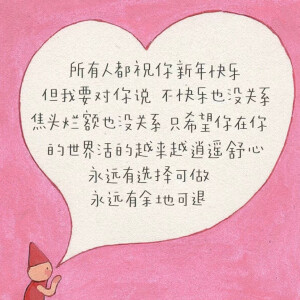 所有人都祝你新年快乐
但我要对你说 不快乐也没关系
焦头烂额也没关系 只希望你在你
的世界活的越来越逍遥舒心
永远有选择可做
永远有余地可退